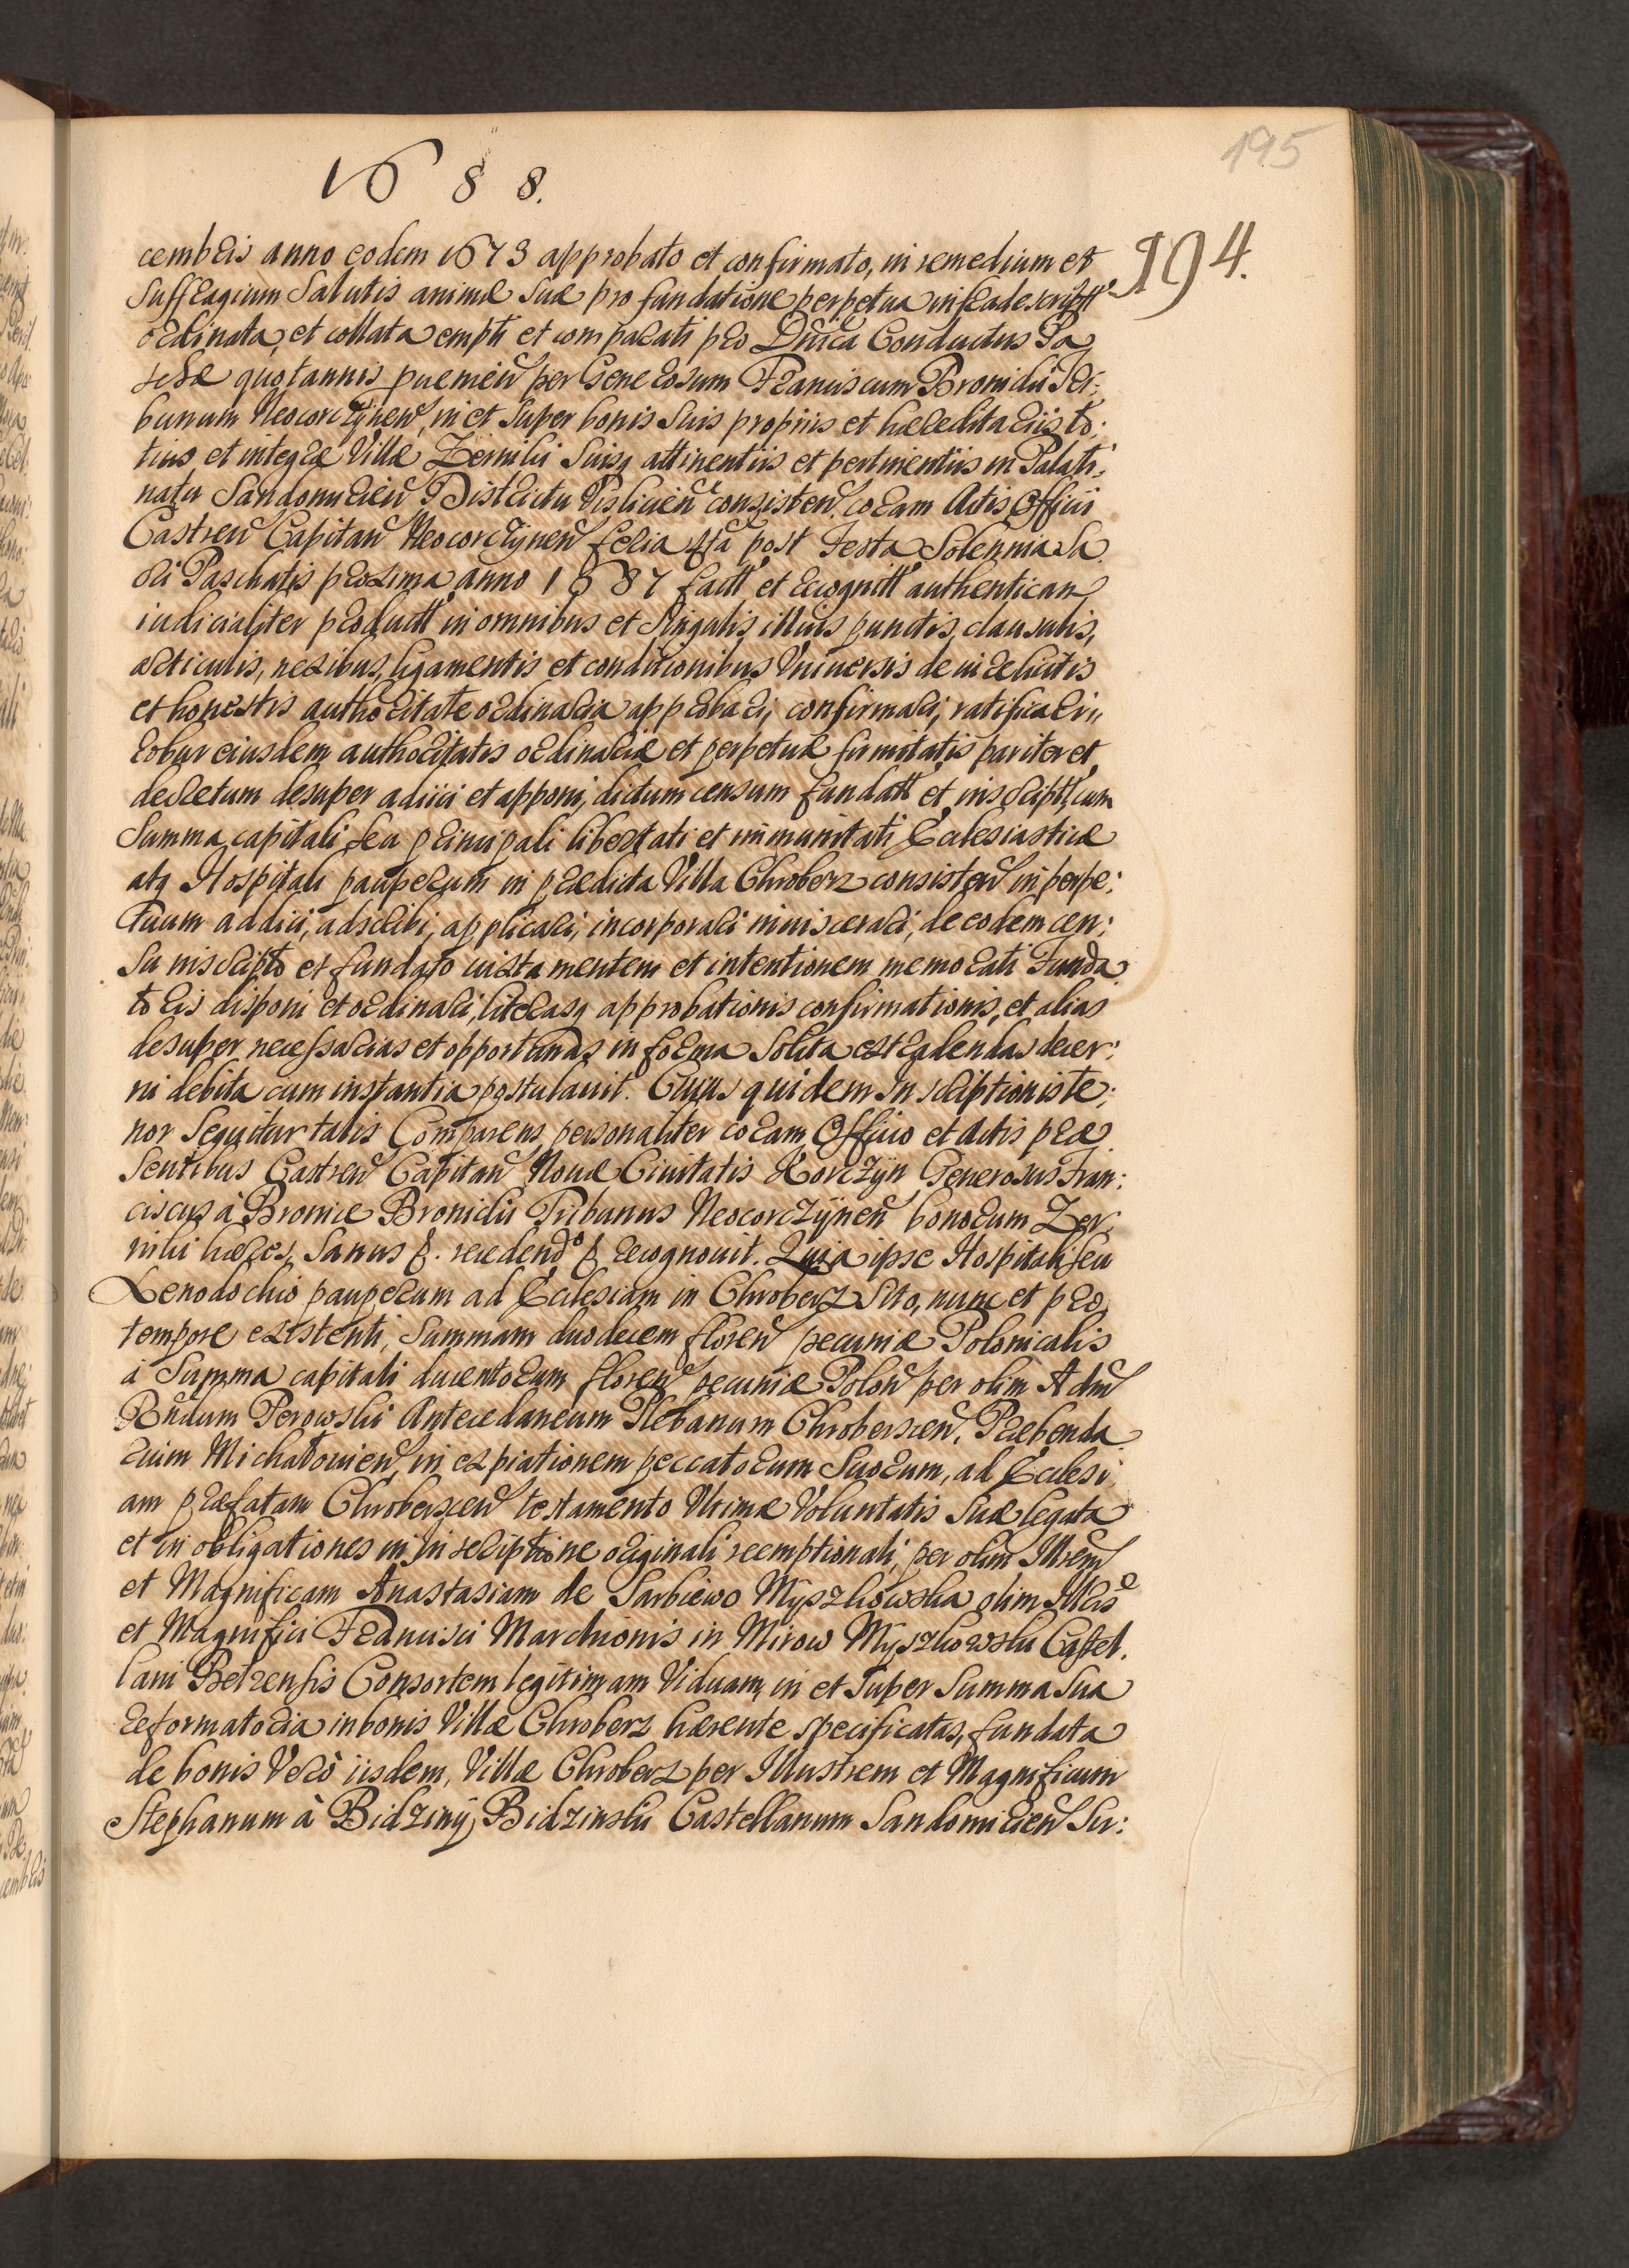 195
1688.
194.
cembris anno eodem 1673 approbato et confirmato, in remedium et
suffragium Salutis animæ suæ pro fundatione perpetua infradescriptt
ordinata, et collata empti et comparati pro Dnica Conductus Pa
schæ quotannis pueniēn per Generosum Franciscum Bronicki Tri:
bunum Neocorczÿnen, in et super bonis suis proprijs et hæreditarijs to:
tius et integræ Villæ Zernik̄i suisq attinentiis et pertinentiis in Palati:
natu Sandomirien Districtu Vislicien consisten. coram Actis Officii
Castren Capitan Neocorczÿnen feria 4ta post Festa Solennia Sa
cri Paschatis proxima anno 1687 factt et recognitt authentican
iudicialiter productt in omnibus et singulis illius punctis, clausulis,
articulis, nexibus, ligamentis et conditionibus Vniuersis de iure licitis
et honestis authoritate ordinaria approbari, confirmari, ratificari,
robur eiusdem authoritatis ordinariæ et perpetuæ firmitatis pariter et
decretum desuper adiici et apponi, dictum censum fundatt et inscriptt, cum
Summa capitali seu principali libertati et immunitati Ecclesiasticæ
atq Hospitali pauperum in prædicta Villa Chroberz consisten in perpe:
tuum addici, adscribi, applicari, incorporari inuiscerari, de eodem cen:
su inscripto et fundato iuxta mentem et intentionem memorati Funda
toris disponi et ordinari, literasq approbationis confirmationis, et alias
desuper necessarias et opportunas in forma solita extradendas decer:
ni debita cum instantia postulauit. Cuius quidem Inscriptionis te:
nor sequitur talis Comparens personaliter coram Officio et Actis præ
sentibus Castren Capitan Nouæ Ciuitatis Korczÿn Generosus Fran:
ciscus à Bronice Bronicki Tribunus Neocorczÿnen bonorum Zer:
niki hæres, Sanus &. recedendo & recognouit. Quia ipse Hospitali seu
Xenodochio pauperum ad Ecclesiam in Chroberz sito, nunc et pro
tempore existenti, Summam duodecem floren pecuniæ Polonicalis
à Summa capitali ducentorum floren pecuniæ Polon per olim Adm
Rndum Perowski Antecedaneum Plebanum Chroberscen, Præbenda
rium Michałouien, in expiationem peccatorum suorum, ad Ecclesi
am præfatam Chroberscen testamento Vltimæ Voluntatis suæ legata
et in obligationes in Inscriptione originali reemptionali, per olim Illrem
et Magnificam Anastasiam de Sarbiewo Myszkowska olim Illris
et Magnifici Francisci Marchionis in Mirow Myszkowski Castel.
lani Belzensis Consortem legitimam Viduam, in et super Summa sua
reformatoria in bonis Villæ Chroberz hærente specificatas, fundata
de bonis Verò iisdem, Villæ Chroberz per Illustrem et Magnificum
Stephanum à Bidzinÿ Bidzinski Castellanum Sandomirien Su: